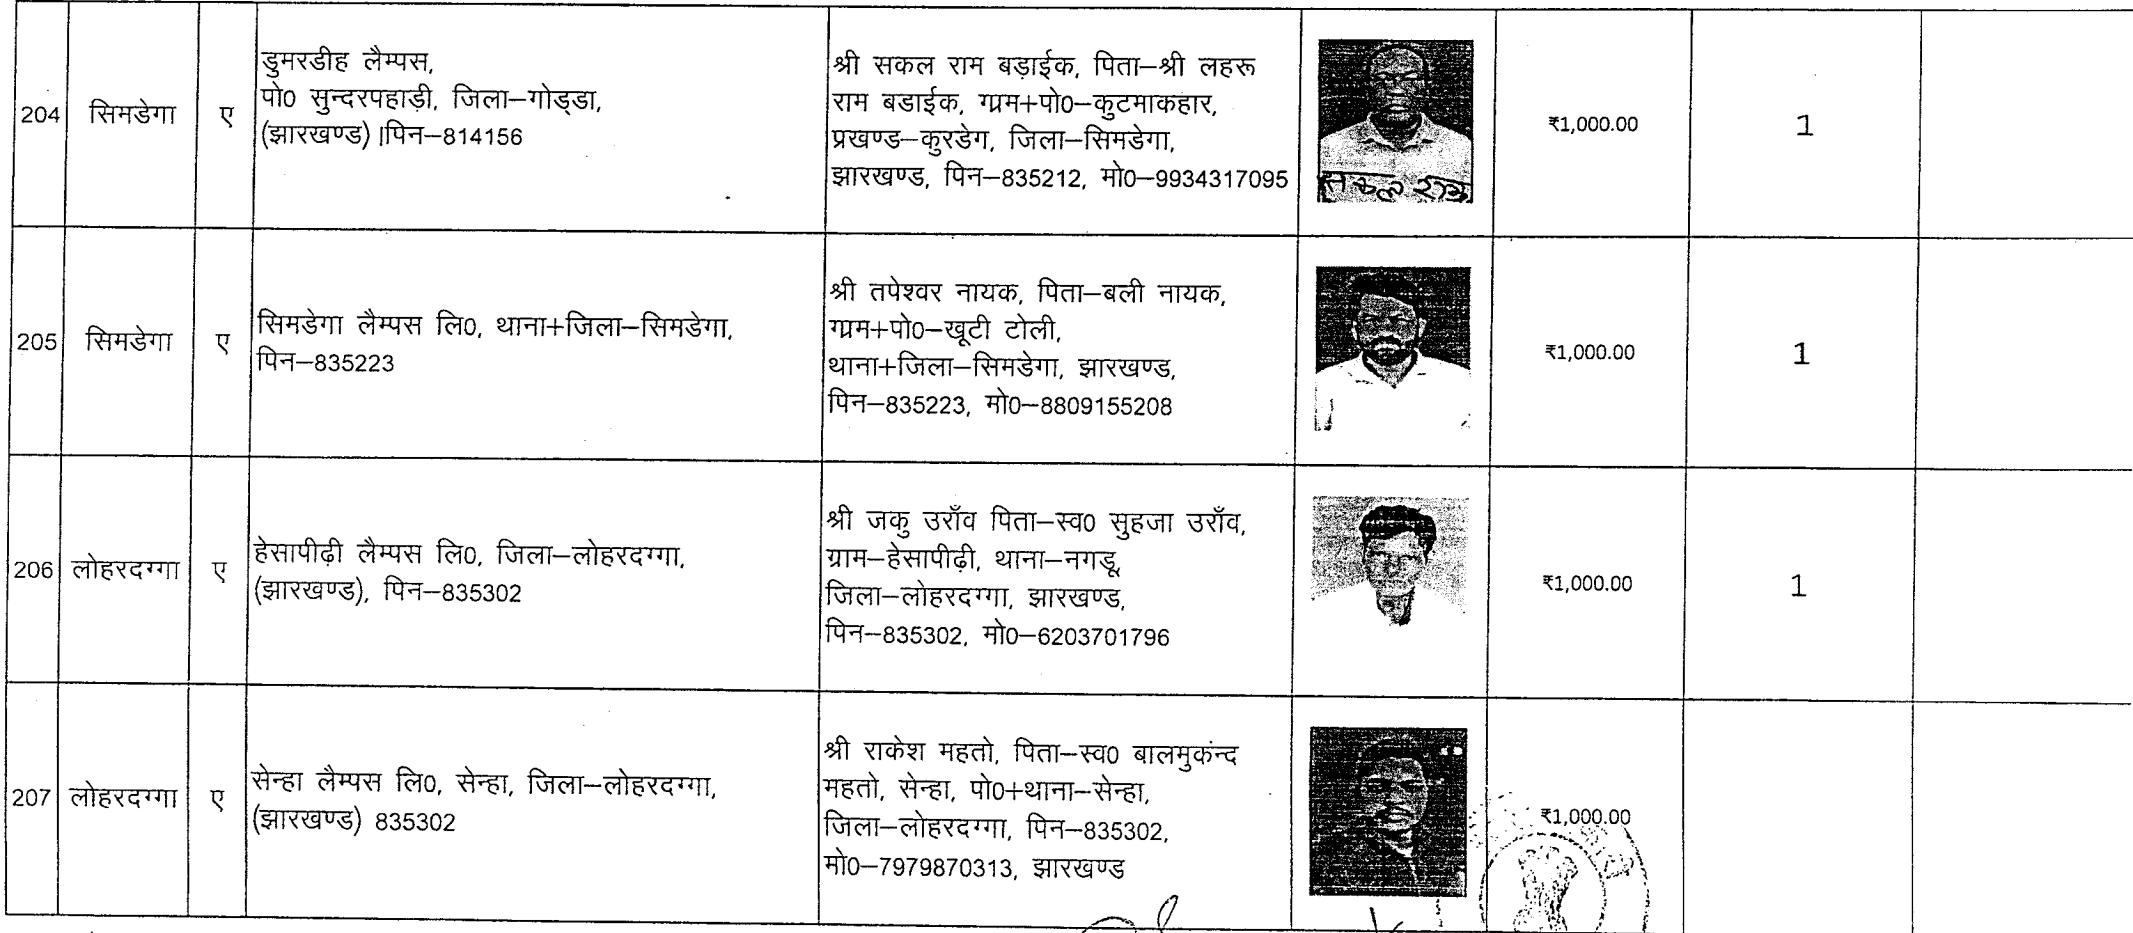 204
सिमडेगा
ए
डुमरडीह लैम्पस,
पो0 सुन्दरपहाड़ी, जिला–गोड्डा,
(झारखण्ड) ।पिन–814156
श्री सकल राम बड़ाईक, पिता–श्री लहरू
राम बडाईक, ग्राम+पो0–कुटमाकहार,
प्रखण्ड–कुरडेग, जिला–सिमडेगा,
झारखण्ड, पिन–835212, मो0–9934317095
सकल राम
₹1,000.00
1
205
सिमडेगा
ए
सिमडेगा लैम्पस लि0, थाना+जिला–सिमडेगा,
पिन–835223
श्री तपेश्वर नायक, पिता–बली नायक,
ग्राम+पो0–खूटी टोली,
थाना+जिला–सिमडेगा, झारखण्ड,
पिन–835223, मो0–8809155208
₹1,000.00
1
206
लोहरदग्गा
ए
हेसापीढ़ी लैम्पस लि0, जिला–लोहरदग्गा,
(झारखण्ड), पिन–835302
श्री जकु उराँव पिता–स्व0 सुहजा उराँव,
ग्राम–हेसापीढ़ी, थाना–नगडू,
जिला–लोहरदग्गा, झारखण्ड,
पिन–835302, मो0–6203701796
₹1,000.00
1
207
लोहरदग्गा
ए
सेन्हा लैम्पस लि0, सेन्हा, जिला–लोहरदग्गा,
(झारखण्ड) 835302
श्री राकेश महतो, पिता–स्व0 बालमुकंन्द
महतो, सेन्हा, पो0+थाना–सेन्हा,
जिला–लोहरदग्गा, पिन–835302,
मो0–7979870313, झारखण्ड
₹1,000.00